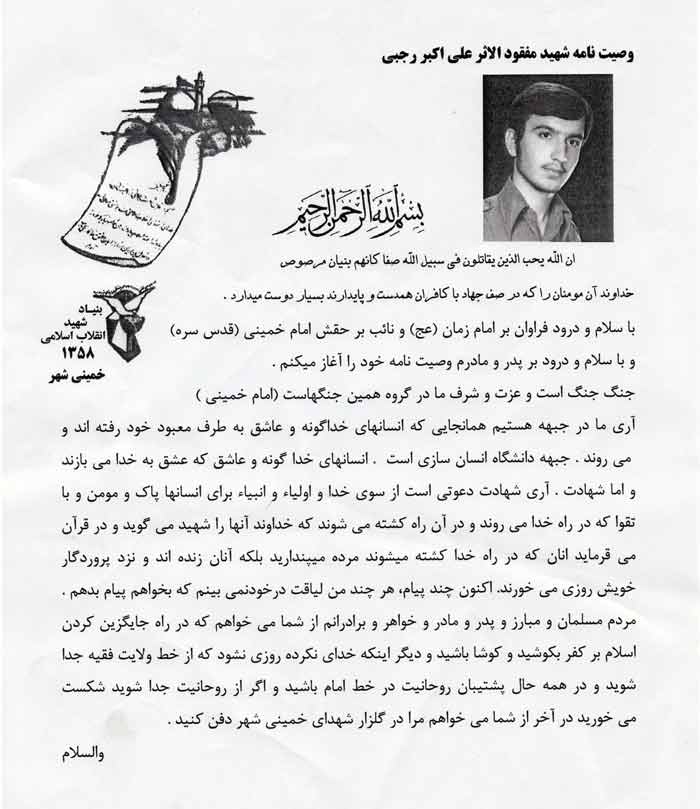 وصیت نامه شهید مفقود الاثر علی اکبر رجبی
بسم الله الرحمن الرحیم
ان الله یحب الذین یقاتلون فی سبیل الله صفا کانهم بنیان مرصوص
خداوند آن مومنان را که در صف جهاد با کافران همدست و پایدارند بسیار دوست میدارد .
بنیاد
شهید
انقلاب اسلامی
۱۳۵۸
خمینی شهر
با سلام و درود فراوان بر امام زمان (عج) و نائب بر حقش امام خمینی (قدس سره)
و با سلام و درود بر پدر و مادرم وصیت نامه خود را آغاز میکنم .
جنگ جنگ است و عزت و شرف ما در گروه همین جنگهاست (امام خمینی )
آری ما در جبهه هستیم همانجایی که انسانهای خداگونه و عاشق به طرف معبود خود رفته اند و
می روند . جبهه دانشگاه انسان سازی است . انسانهای خدا گونه و عاشق که عشق به خدا می بازند
و اما شهادت . آری شهادت دعوتی است از سوی خدا و اولیاء و انبیاء برای انسانها پاک و مومن و با
تقوا که در راه خدا می روند و در آن راه کشته می شوند که خداوند آنها را شهید می گوید و در قرآن
می قرماید انان که در راه خدا کشته میشوند مرده میپندارید بلکه آنان زنده اند و نزد پروردگار
خویش روزی می خورند. اکنون چند پیام، هر چند من لیاقت درخودنمی بینم که بخواهم پیام بدهم .
مردم مسلمان و مبارز و پدر و مادر و خواهر و برادرانم از شما می خواهم که در راه جایگزین کردن
اسلام بر کفر بکوشید و کوشا باشید و دیگر اینکه خدای نکرده روزی نشود که از خط ولایت فقیه جدا
شوید و در همه حال پشتیبان روحانیت در خط امام باشید و اگر از روحانیت جدا شوید شکست
می خورید در آخر از شما می خواهم مرا در گلزار شهدای خمینی شهر دفن کنید .
والسلام